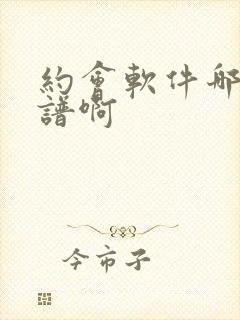 約會軟件哪
譜啊
今市子